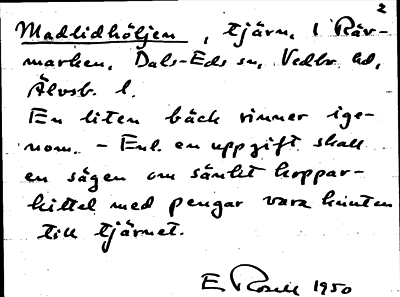 2
Madlidhöljen, tjärn, i Räv-
marken, Dals-Eds sn, Vedbo hd,
Älvsb. l.
En liten bäck rinner ige-
nom. – Enl. en uppgift skall
en sägen om sänkt koppar-
kittel med pengar vara knuten
till tjärnet.
E. Rosell 1950